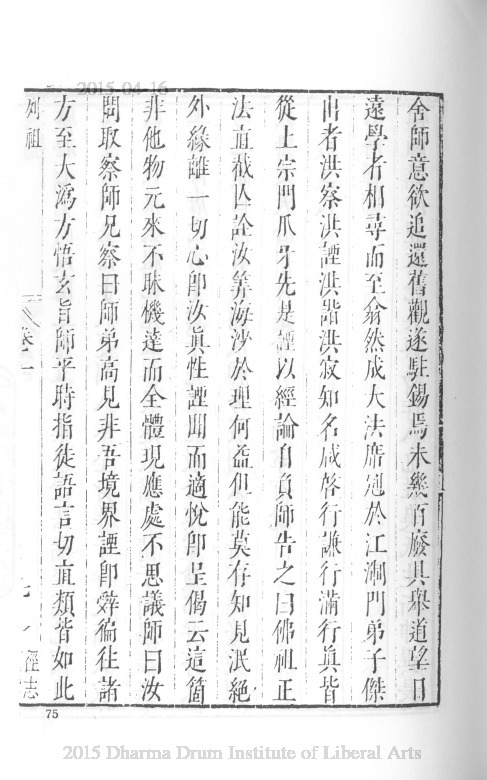 舍師意欲追還舊觀遂駐錫焉未幾百廢具舉道望日
遠學者相尋而至翕然成大法席冠於江湖門弟子傑
出者洪察洪諲洪諧洪㝛知名咸啓行謙行滿行眞皆
從上宗門爪牙先是諲以經論自負師告之曰佛祖正
法直截亾詮汝筭海沙於理何益但能莫存知見泯絕
外緣離一切心卽汝眞性諲聞而適悅卽呈偈云這箇
非他物元來不昧機達而全體現應處不思議師曰汝
問取察師兄察曰師弟高見非吾境界諲卽辭徧往諸
方至大潙方悟玄旨師平時指徒語言切直類皆如此
列祖
卷一
徑志
75
2015-04-16
2015 Dharma Drum Institute of Liberal Arts